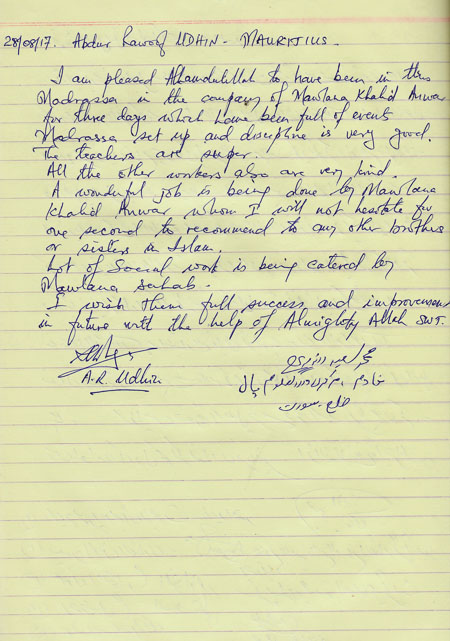 28/08/17. Abdur Rawoof UDHIN - MAURITIUS -
I am pleased Alhamdulillah to have been in this
Madrassa in the company of Mawlana Khalid Anwar
for three days which have been full of events
Madrassa set up and discipline is very good.
The teachers are super.
All the other workers also are very kind.
A wonderful job is being done by Mawlana
Khalid Anwar whom I will not hesitate for
one second to recommend to any other brothers
or sisters in Islam.
Lot of Social work is being catered by
Mawlana Sahab.
I wish them full success and improvement
in future with the help of Almighty Allah SWT.
A.R. Udhin
محمد
خادم
ضلع سورت